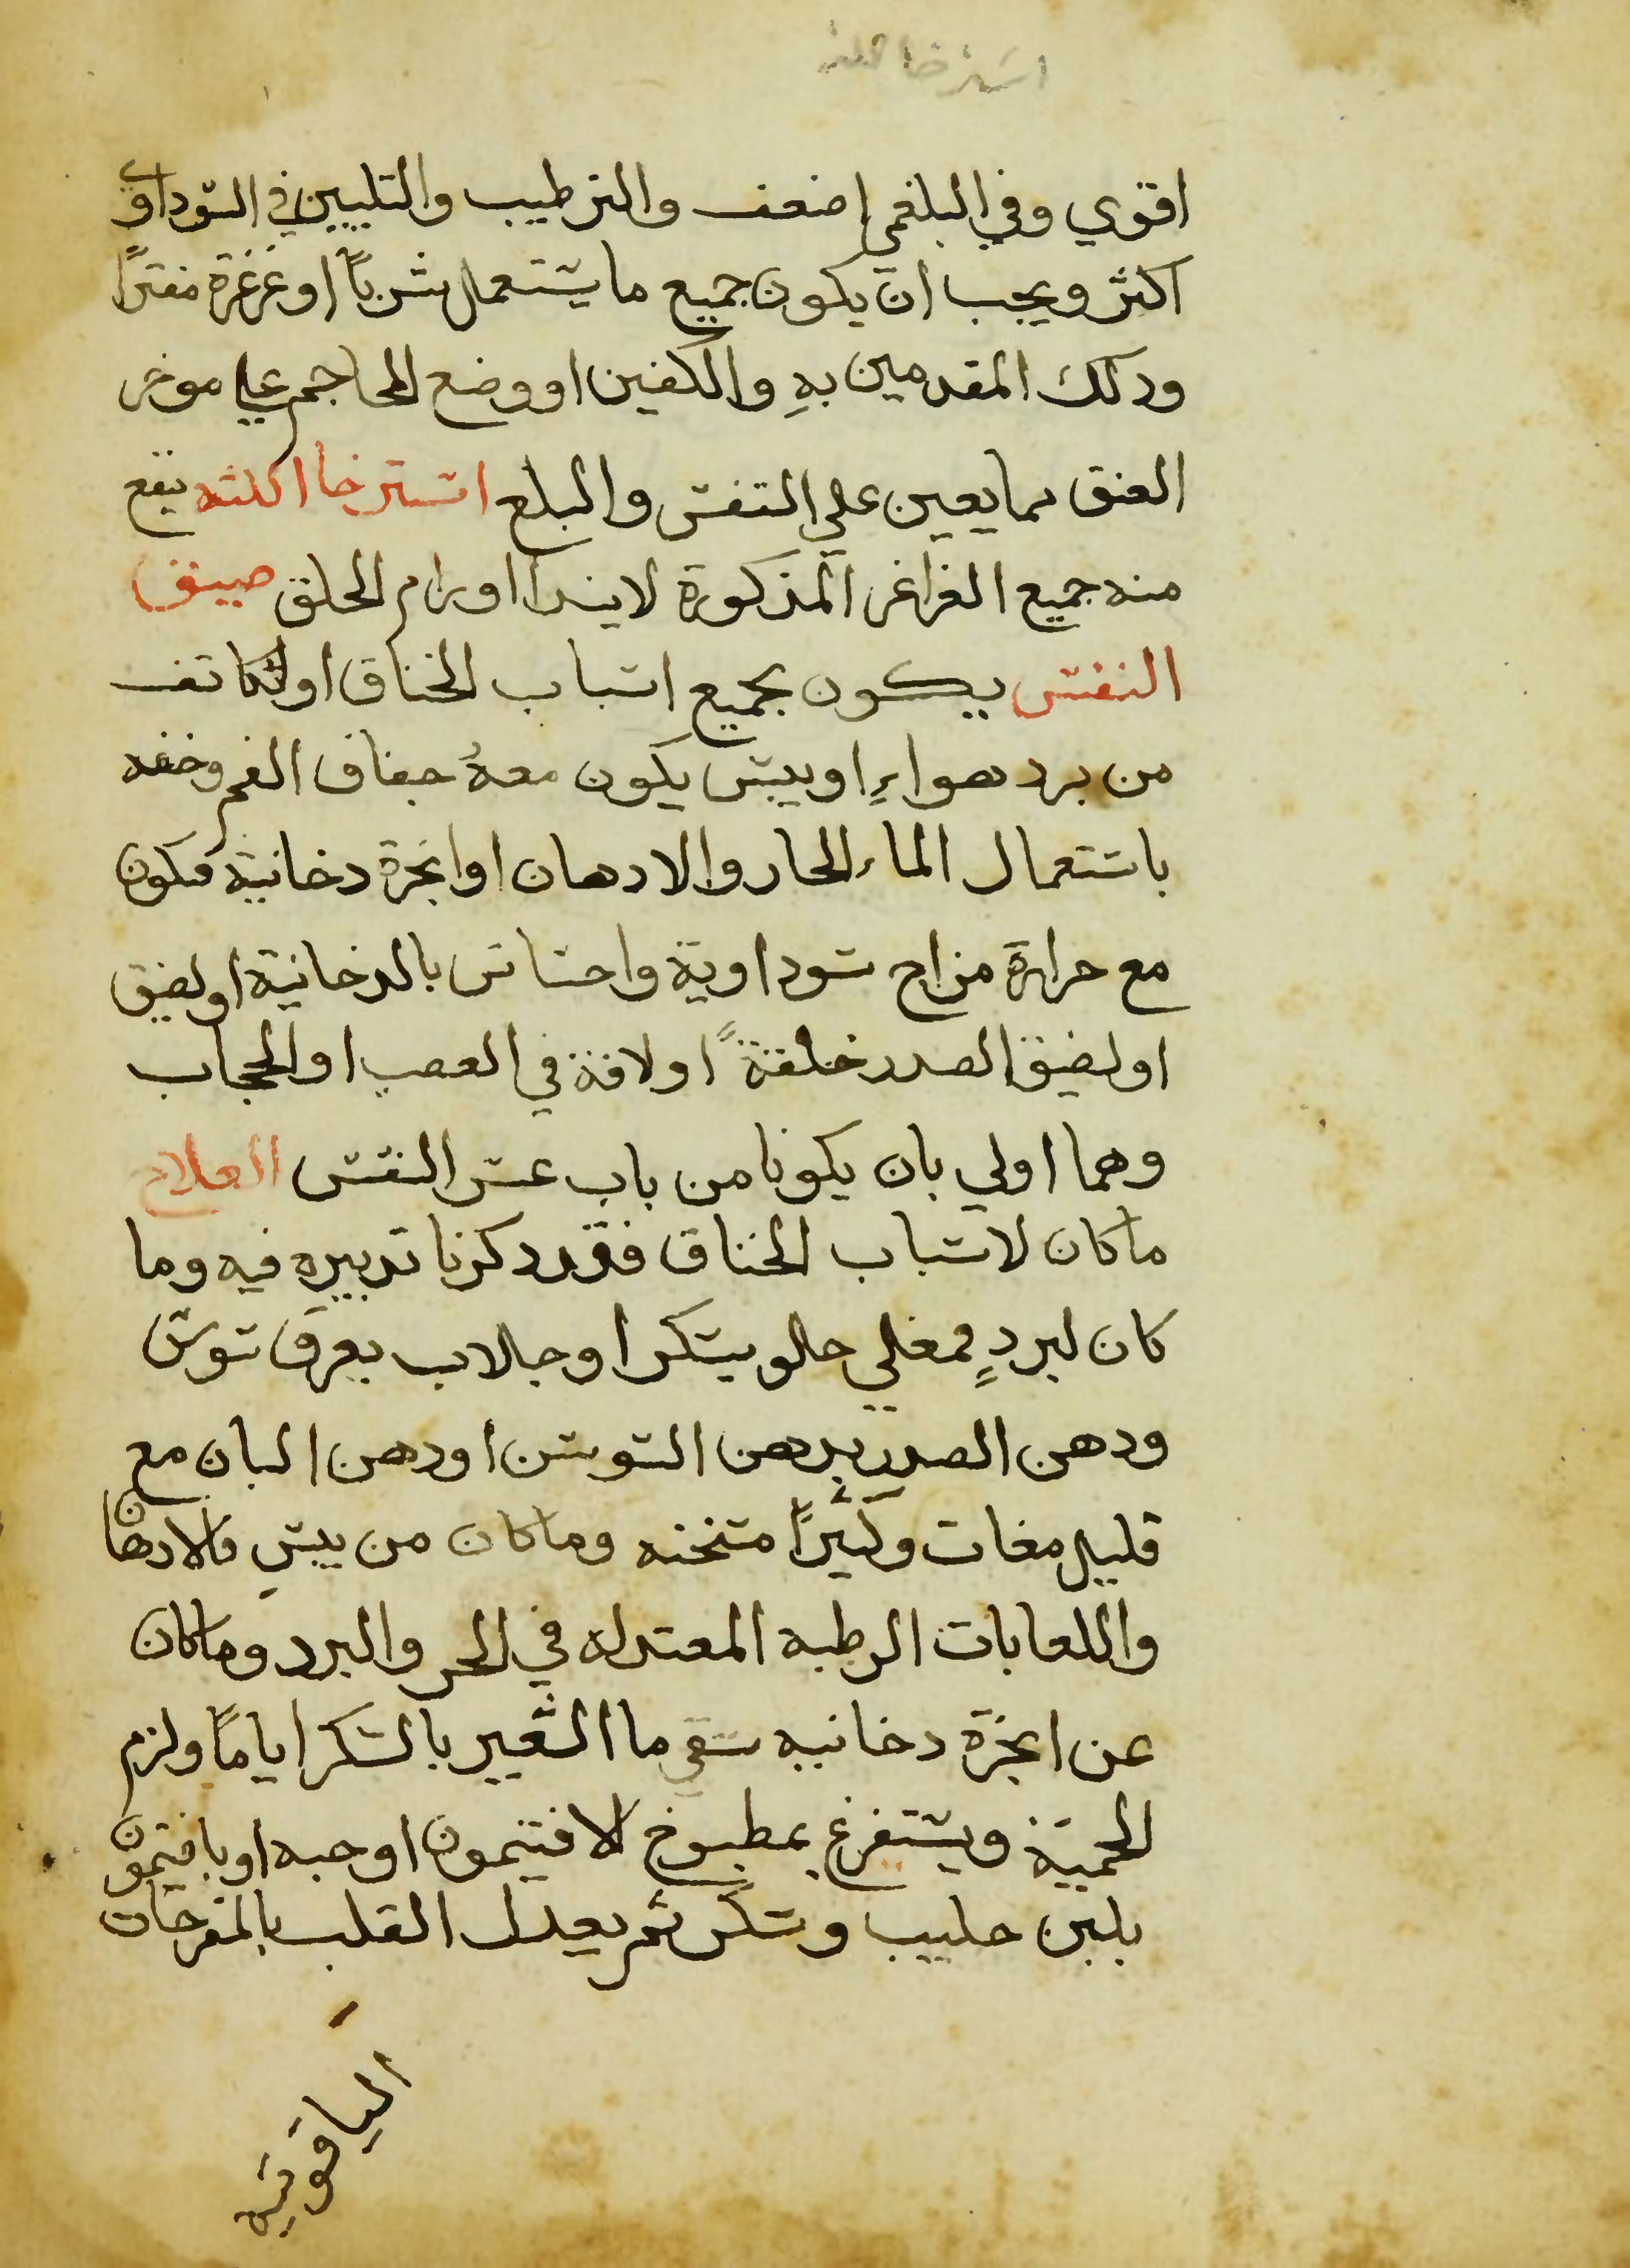 استرخا اللثه
اقوي وفي البلغمي اضعف والترطيب والتليين في السوداوي
اكثر ويجب ان يكون جميع ما يستعمل شرباً او غرغرة مفتراً
ودلك المقدمين به والكفين او وضع المحاجم علي موخر
العنق مما يعين علي التنفس والبلع استرخا اللثه ينفع
منه جميع الغراغر المذكورة لابتدا اورام الحلق ضيق
النفس يكون بجميع اسباب الخناق او لتكاثف
من برد هواءٍ او يبس يكون معهُ جفاف الفم وخفه
باستعمال الماء الحار والادهان او ابخرة دخانية فيكون
مع حرارة مزاج سوداوية واحساس بالدخانية او لضيق
او لضيق الصدر خلقةً او لافة في العصب او الحجاب
وهما اولي بان يكونا من باب عسر النفس العلاج
ما كان لاسباب الخناق فقد ذكرنا تدبيره فيه وما
كان لبردٍ فمغلي حلو بسكر او جلاب بعرق سوسن
ودهن الصدر بدهن السوسن او دهن البان مع
قليل مغات وكثيراً مسخنه وما كان من يبسٍ فالادهان
واللعابات الرطبه المعتدله في الحر والبرد وما كان
عن ابخرة دخانيه سقي ما الشعير بالسكر اياماً ولزم
الحمية ويستفرغ بمطبوخ الافتيمون او حبه او بافتيمون
بلبن حليب وسكر ثم يعدل القلب بالمفرحات
الياقوتيه